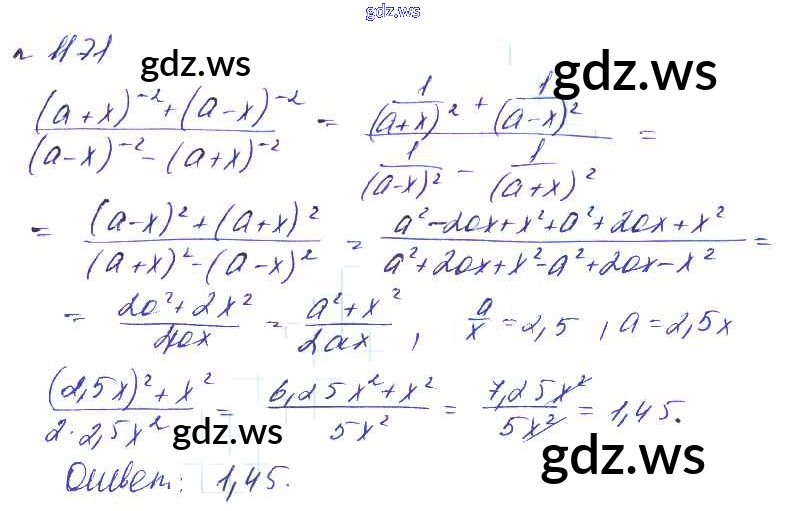 gdz.ws
n 1171
gdz.ws
gdz.ws
((a+x)^-2 + (a-x)^-2) / ((a-x)^-2 - (a+x)^-2) = (1/(a+x)^2 + 1/(a-x)^2) / (1/(a-x)^2 - 1/(a+x)^2) =
= ((a-x)^2 + (a+x)^2) / ((a+x)^2 - (a-x)^2) = (a^2-2ax+x^2+a^2+2ax+x^2) / (a^2+2ax+x^2-a^2+2ax-x^2) =
= (2a^2+2x^2) / 4ax = (a^2+x^2) / 2ax , a/x = 2,5 , a = 2,5x
((2,5x)^2 + x^2) / (2·2,5x^2) = (6,25x^2+x^2) / 5x^2 = 7,25x^2 / 5x^2 = 1,45.
gdz.ws
gdz.ws
Ответ: 1,45.